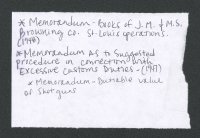 * Memorandum - Books of J.M. & M.S.
Browning Co. St. Louis operations.
(1948)
* Memorandum As to Suggested
procedure in connection with
Excessive Customs Duties - (1947)
* Memorandum - Dutiable value
of shotguns